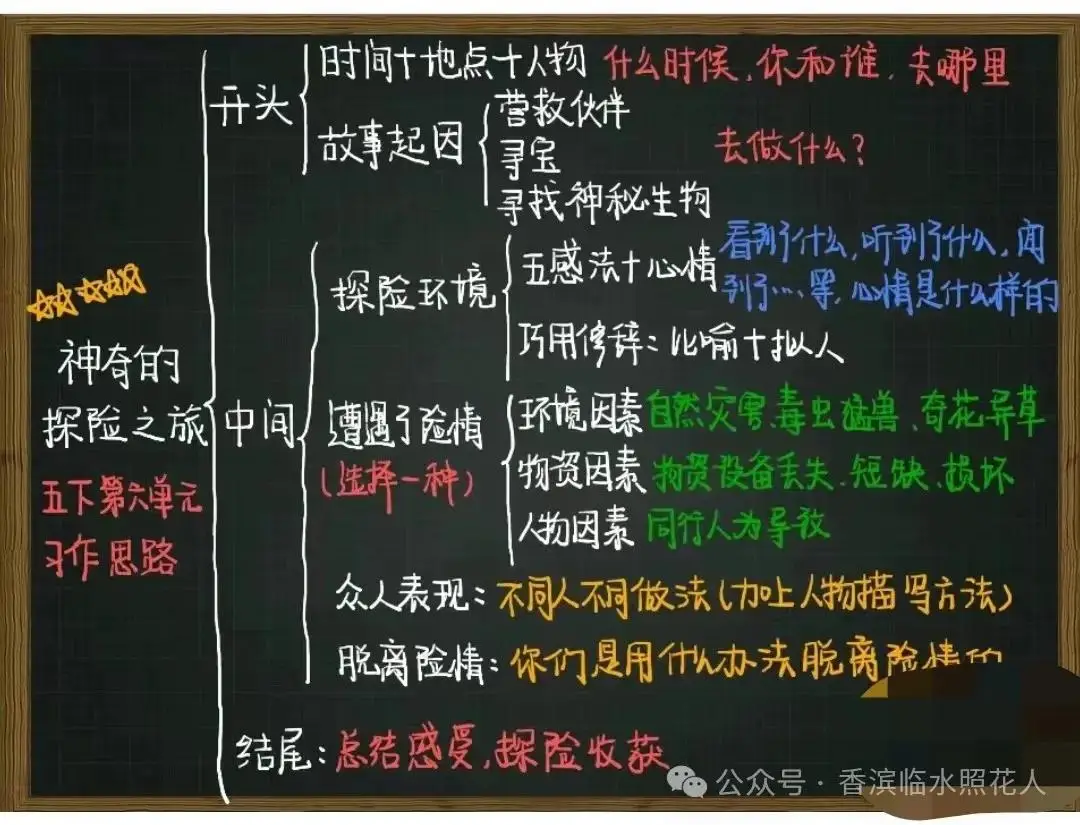 开头
时间+地点+人物 什么时候,你和谁,去哪里
故事起因
营救伙伴
寻宝
寻找神秘生物
去做什么?
神奇的
探险之旅
五下第六单元
习作思路
中间
探险环境
五感法+心情
看到了什么,听到了什么,闻
到了…等,心情是什么样的
巧用修辞:比喻+拟人
遭遇了险情
(选择一种)
环境因素 自然灾害、毒虫猛兽、奇花异草
物资因素 物资设备丢失、短缺、损坏
人物因素 同行人为导致
众人表现:不同人不同做法(加上人物描写方法)
脱离险情:你们是用什么办法脱离险情的
结尾:总结感受,探险收获
公众号·香滨临水照花人